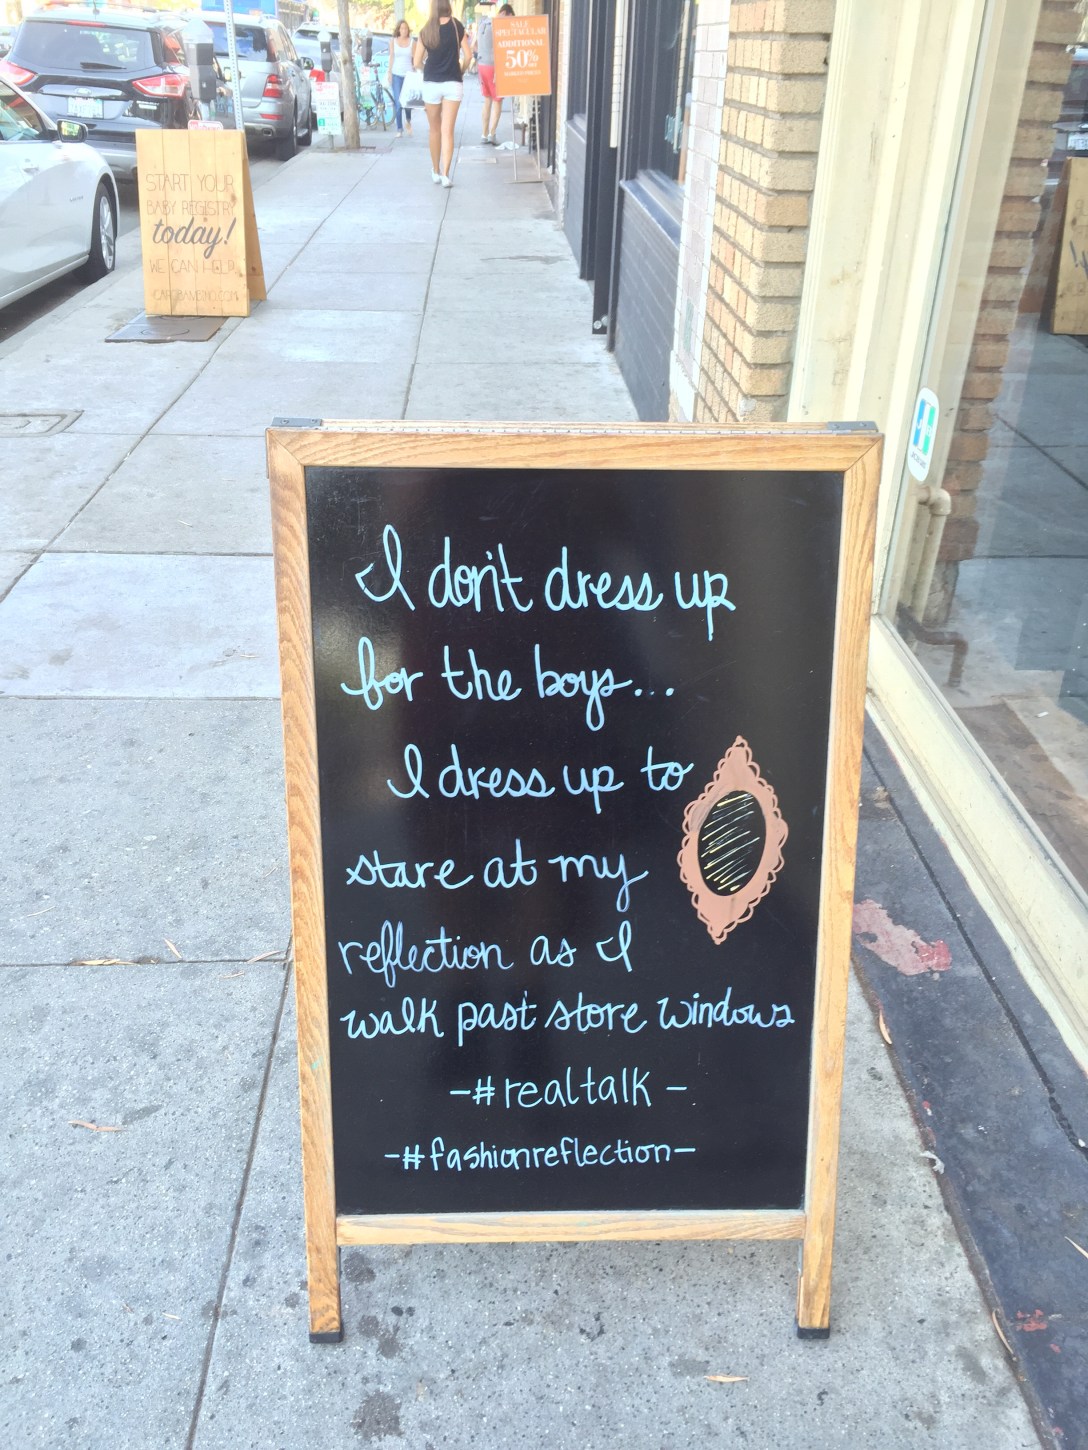 SALE
SPECTACULAR
ADDITIONAL
50%
START YOUR
BABY REGISTRY
today!
WE CAN HELP
I don't dress up
for the boys...
I dress up to
stare at my
reflection as I
walk past store windows
-#realtalk-
-#fashionreflection-